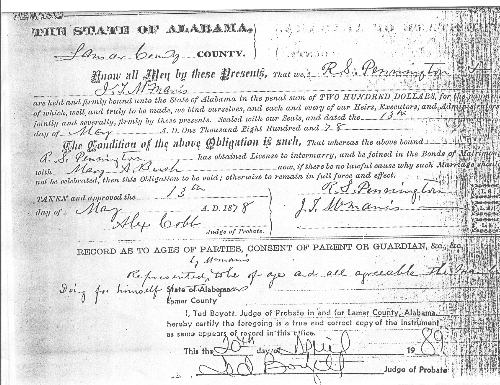 THE STATE OF ALABAMA,
Lamar County COUNTY.
Know all Men by these Presents, That we, R. S. Pennington
J. T. McManis
are held and firmly bound unto the State of Alabama in the penal sum of TWO HUNDRED DOLLARS, for the
of which, well and truly to be made, we bind ourselves, and each and every of our Heirs, Executors, and Adm
jointly and severally, firmly by these presents. Sealed with our Seals, and dated the 13th
day of May A. D. One Thousand Eight Hundred and 78
The Condition of the above Obligation is such, That whereas the above bound
R. S. Pennington has obtained License to intermarry, and be joined in the Bonds of Matrimony
with Mary A. Bush now, if there be no lawful cause why such Marriage
not be celebrated, then this Obligation to be void; otherwise to remain in full force and effect.
TAKEN and approved the 13th R. S. Pennington
day of May A. D. 1878 J. T. McManis
Alex Cobb
Judge of Probate.
RECORD AS TO AGES OF PARTIES, CONSENT OF PARENT OR GUARDIAN, &c., &c.
by McManis
Represented to be of age and all agreeable
Doing for himself State of Alabama
Lamar County
I, Ted Boyett, Judge of Probate in and for Lamar County, Alabama,
hereby certify the foregoing is a true and correct copy of the instrument
as same appears of record in this office.
This the 20th day of April 19 89
Judge of Probate